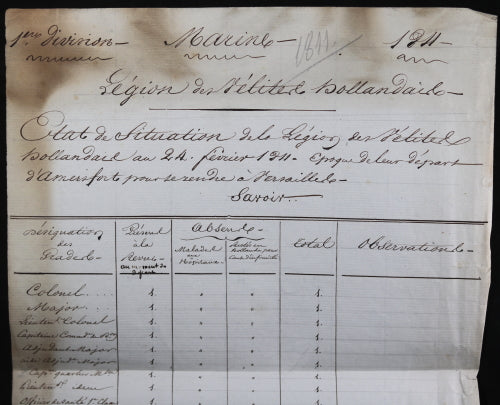 1ère Division Marine 1811. 1811
Légion des Vélites Hollandais
Etat de Situation de la Légion des Vélites
hollandais au 24. février 1811. Epoque de leur départ
d'Amersfort pour se rendre à Versailles
Savoir
Désignation des Grades Présens à la Revue au moment du départ Absens Total Observations
Malades aux Hôpitaux Restés en
Colonel . . . 1. " " 1.
Major . . . 1. " " 1.
Lieutent. Colonel 1. " " 1.
Capitaine Commt. de 1. " " 1.
Adjudant Major 1. " " 1.
Adjdt. Major 1. " " 1.
Capne. quartier Mtre 1. " " 1.
Lieutent. 1. " " 1.
Officier de santé 1. " " 1.